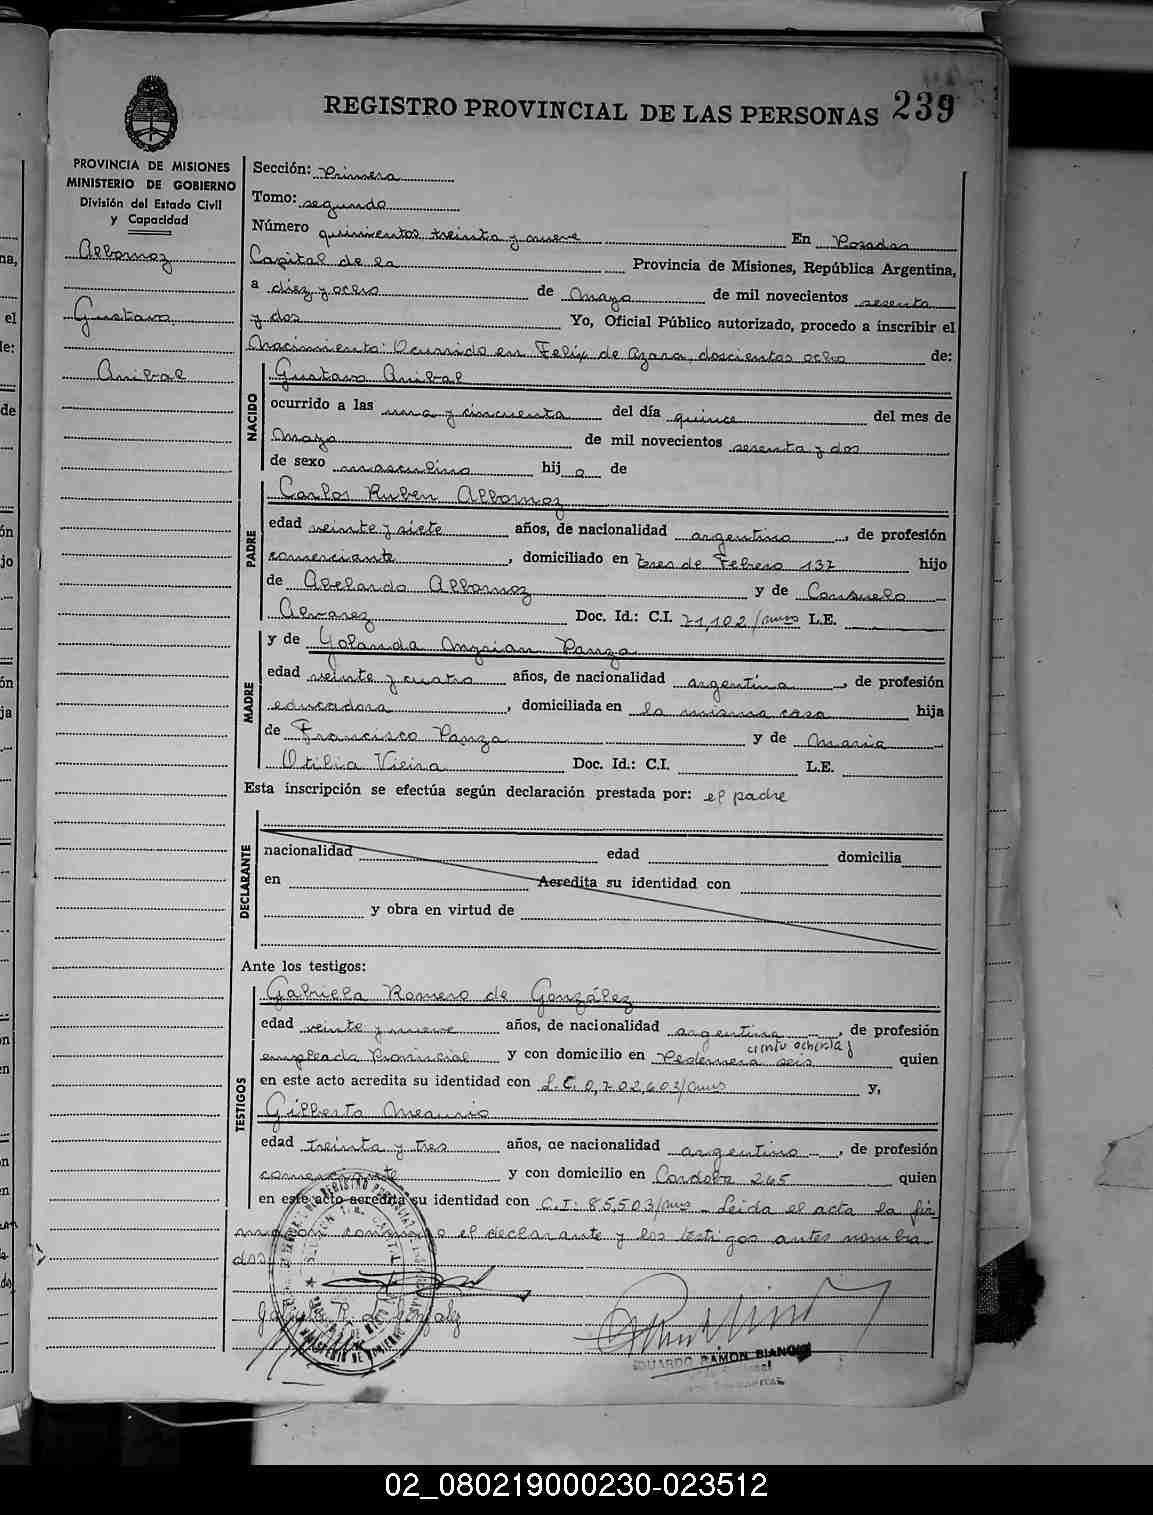 REGISTRO PROVINCIAL DE LAS PERSONAS 239
PROVINCIA DE MISIONES
MINISTERIO DE GOBIERNO
División del Estado Civil
y Capacidad
Albornoz
Gustavo
Anibal
Sección: Primera
Tomo: segundo
Número quinientos treinta y nueve En Posadas
Capital de la Provincia de Misiones, República Argentina,
a diez y ocho de Mayo de mil novecientos sesenta
y dos Yo, Oficial Público autorizado, procedo a inscribir el
Nacimiento: Ocurrido en Felix de Azara, doscientos ocho de:
NACIDO
Gustavo Anibal
ocurrido a las una y cincuenta del día quince del mes de
Mayo de mil novecientos sesenta y dos
de sexo masculino hijo de
PADRE
Carlos Ruben Albornoz
edad veinte y siete años, de nacionalidad argentino, de profesión
comerciante, domiciliado en tres de Febrero 137 hijo
de Abelardo Albornoz y de Consuelo
Alvarez Doc. Id.: C.I. 71,102/mnes L.E.
MADRE
y de Yolanda Panza
edad veinte y cuatro años, de nacionalidad argentina, de profesión
educadora, domiciliada en la misma casa hija
de Francisco Panza y de Maria
Otilia Vieira Doc. Id.: C.I. L.E.
Esta inscripción se efectúa según declaración prestada por: el padre
DECLARANTE
nacionalidad edad domicilia
en Acredita su identidad con
y obra en virtud de
Ante los testigos:
TESTIGOS
Gabriela Romero de González
edad veinte y nueve años, de nacionalidad argentina, de profesión
ciento ochenta y
empleada Provincial y con domicilio en Pedernera seis quien
en este acto acredita su identidad con L.C. 0,702,603/mnes y,
Gilberto Meaurio
edad treinta y tres años, de nacionalidad argentino, de profesión
comerciante y con domicilio en Cordoba 265 quien
en este acto acredita su identidad con C.I: 85,503/mns - Leida el acta la fir_
man conmigo el declarante y los testigos antes nombra_
dos
EDUARDO RAMON BIANCHI
02_080219000230-023512